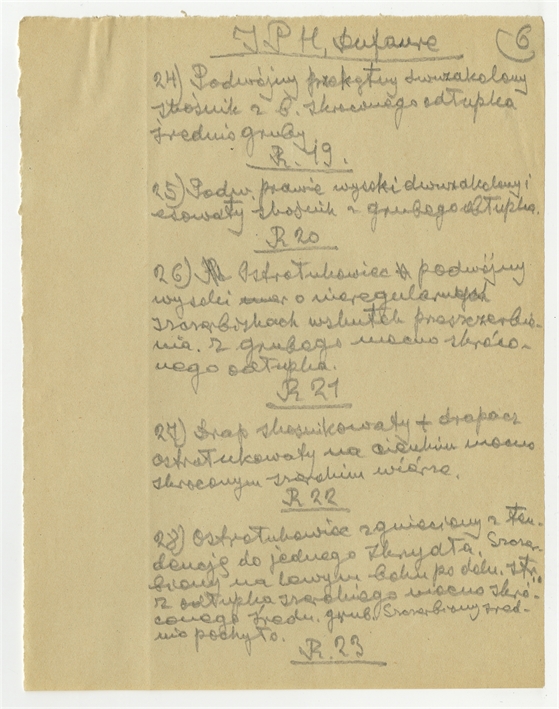 J P H, Dufaure
6
24) Podwójny przekątny dwuzakolony
skośnik z b. skróconego odłupka
średnio gruby
R. 19.
25) Podw. prawie wysoki dwuzakolony i
esowaty skośnik z grubego odłupka.
R 20
26) Ostrołukowiec podwójny
wysoki o nieregularnych
szczerbiskach wskutek przeszczerbie-
nia. z grubego mocno skróco-
nego odłupka.
R 21
27) Drap skośnikowaty + drapacz
ostrołukowaty na cienkim mocno
skróconym szerokim wiórze.
R 22
28) Ostrołukowiec zgnieciony z ten-
dencją do jednego skrzydła. Szczer-
biony na lewym boku po doln. str.
z odłupka szerokiego mocno skró-
conego średn. grub. Szczerbiony śred-
nio pochyło.
R. 23